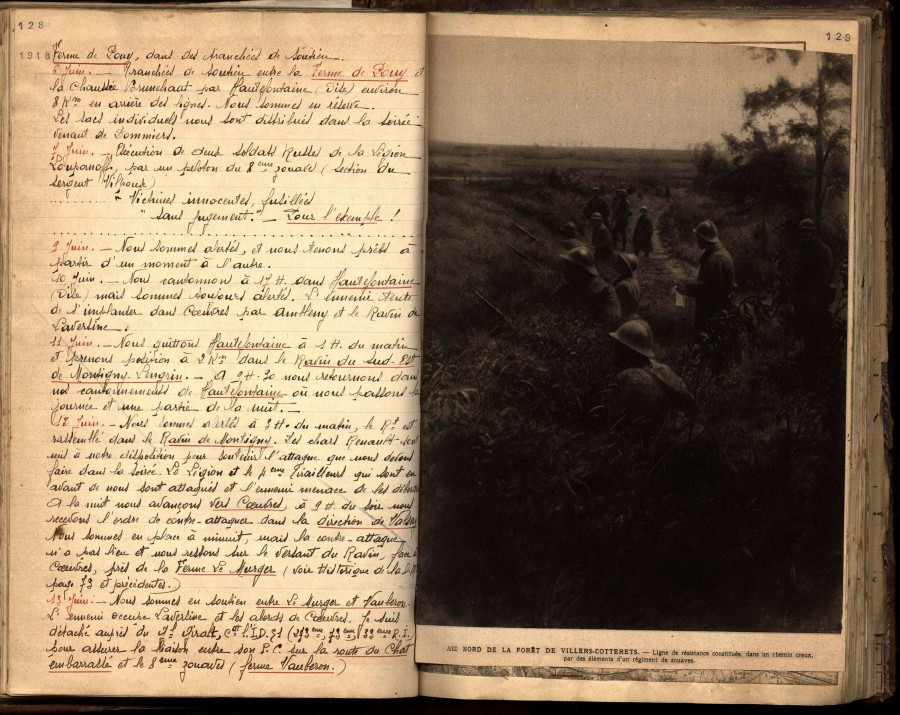 128
1918 Ferme de Pouy, dans des tranchées de soutien.
2 Juin. — Tranchées de soutien entre la Ferme de Pouy et
la Chaussée Brunehaut par Hautefontaine (Oise) environ
8 Km en arrière des lignes. Nous sommes en réserve.
Les sacs individuels nous sont distribués dans la soirée
venant de Dommiers.
7 Juin. — Exécution de deux soldats Russes de la Légion
par un peloton du 8ème zouave (section du
sergent
" Victimes innocentes, fusillées
"sans jugement." — Pour l'exemple !
9 Juin. — Nous sommes alertés, et nous tenons prêts à
partir d'un moment à l'autre.
10 Juin. — Nous cantonnons à 17 H. dans Hautefontaine
(Oise) mais sommes toujours alertés. L'ennemi tente
de s'implanter dans Cœuvres par Ambleny et le Ravin de
Laversine.
11 Juin. — Nous quittons Hautefontaine à 1 H. du matin
et prenons position à 2 Km dans le Ravin du Sud-Est
de Montigny-Lengrin. — A 9 H. 30 nous retournons dans
nos cantonnements de Hautefontaine où nous passons la
journée et une partie de la nuit. —
12 Juin. — Nous sommes alertés à 3 H. du matin, le Rt est
rassemblé dans le Ravin de Montigny. Les chars Renault sont
mis à notre disposition pour soutenir l'attaque que nous devons
faire dans la soirée. La Légion et le 4ème Tirailleurs qui sont en
avant de nous sont attaqués et l'ennemi menace de les
A la nuit nous avançons vers Cœuvres, à 9 H. du soir nous
recevons l'ordre de contre-attaquer dans la direction de
Nous sommes en place à minuit, mais la contre-attaque
n'a pas lieu et nous restons sur le versant du Ravin, face à
Cœuvres, près de la Ferme Le Murger (voir Historique de la
page 73 et précédentes.)
13 Juin. — Nous sommes en soutien entre Le Murger et Vauberon.
L'ennemi occupe Laversine et les abords de Cœuvres. Je suis
détaché auprès du Giralt, Ct l'I.D.
pour assurer la liaison entre son P.C. sur la route du Chat
embarrassé et le 8ème zouaves (ferme Vauberon.)
129
AU NORD DE LA FORÊT DE VILLERS-COTTERETS. — Ligne de résistance constituée, dans un chemin creux,
par des éléments d'un régiment de zouaves.